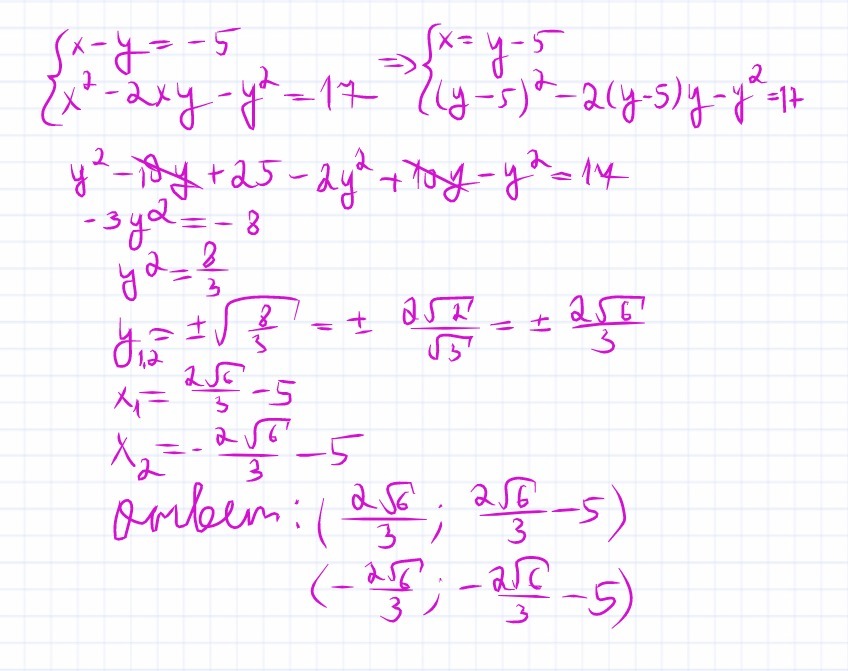 {x - y = -5 => {x = y - 5
{x² - 2xy - y² = 17 {(y-5)² - 2(y-5)y - y² = 17
y² - 10y + 25 - 2y² + 10y - y² = 17
-3y² = -8
y² = 8/3
y₁,₂ = ±√(8/3) = ± 2√2/√3 = ± 2√6/3
x₁ = 2√6/3 - 5
x₂ = -2√6/3 - 5
Ответ: (2√6/3; 2√6/3 - 5)
(-2√6/3; -2√6/3 - 5)